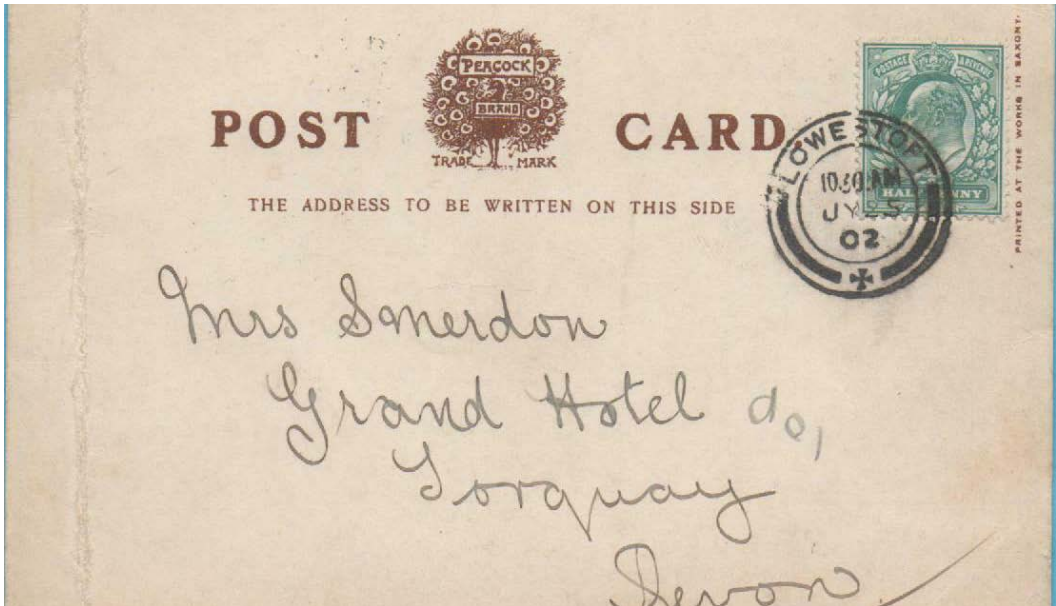 PEACOCK
BRAND
POST CARD
TRADE MARK
THE ADDRESS TO BE WRITTEN ON THIS SIDE
POSTAGE & REVENUE
HALFPENNY
LOWESTOFT
10.30 AM
JY 25
02
PRINTED AT THE WORKS IN SAXONY.
Mrs Smerdon
Grand Hotel
Torquay
Devon